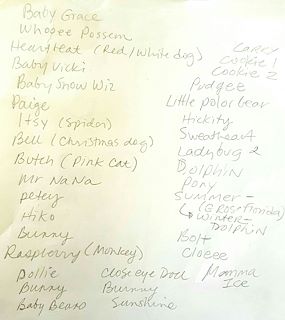 Baby Grace
Whopee Possem
Heartbeat (Red/White dog)
Baby Vicki
Baby Snow Wiz
Paige
Itsy (Spider)
Bell (Christmas dog)
Butch (Pink Cat)
Mr NaNa
petey
Hiko
Bunny
Raspberry (Monkey)
Dollie
Bunny
Baby Beans
Close eye Doll
Bunny
Sunshine
Carey
Cookie 1
Cookie 2
Pudgee
Little polar bear
Hickity
Sweatheart
Ladybug 2
Dolphin
Pony
Summer -
(G Rose-Florida)
Winter-
Dolphin
Bolt
Cloeee
Momma
Ice